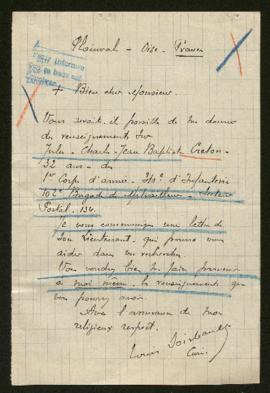 Plainval - Oise - France
+ Bien cher Monsieur.
Vous serait-il possible de me donner
des renseignements sur
Jules - Charles Jean Baptiste Creton -
32 ans - du
1er Corps d'armée - d'Infanterie
102e Brigade de Mitrailleurs - Secteur
Postal. 134.
Je vous communique une lettre de
son Lieutenant, qui pourra vous
aider dans vos recherches
Vous voudrez bien me faire parvenir
à moi même, les renseignements que
vous pourrez avoir.
Avec l'assurance de mon
religieux respect.
Louis
Curé.